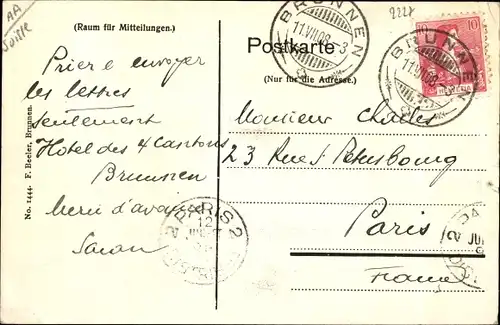 AA
Suisse
(Raum für Mitteilungen.)
Postkarte
(Nur für die Adresse.)
BRUNNEN
11.VII.08.-3
BRUNNEN
11.VII.08.
10
10
Prière envoyer
les lettres
seulement
Hotel des 4 Cantons
Brunnen
Merci d'avance
Monsieur Charles
23 Rue St Petersbourg
Paris
France
PARIS 2
12
No. 1444. F. Beeler, Brunnen.